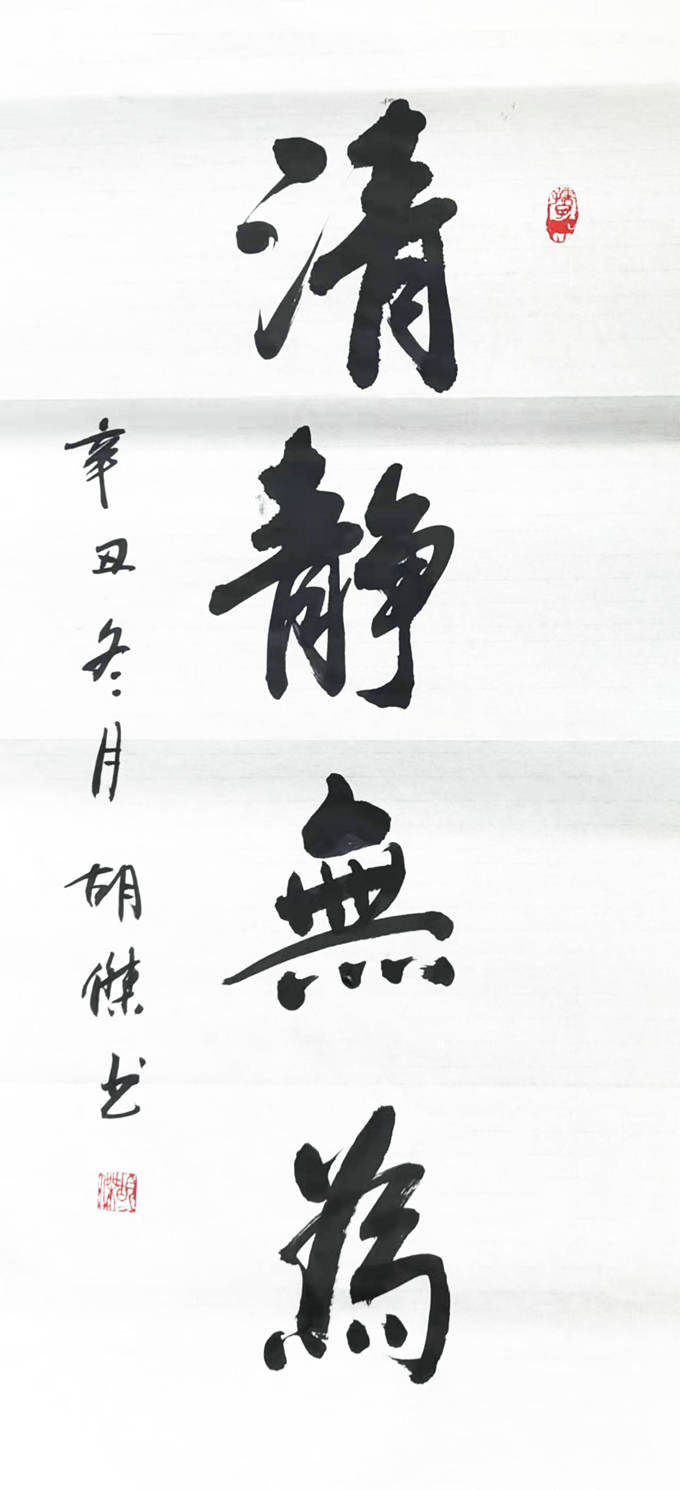 清靜無為
辛丑冬月胡傑书